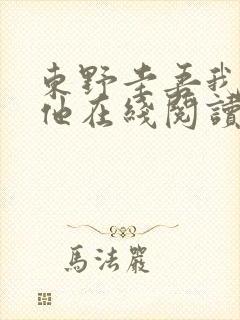 東野圭吾我
他在綫閱讀
馬法嚴